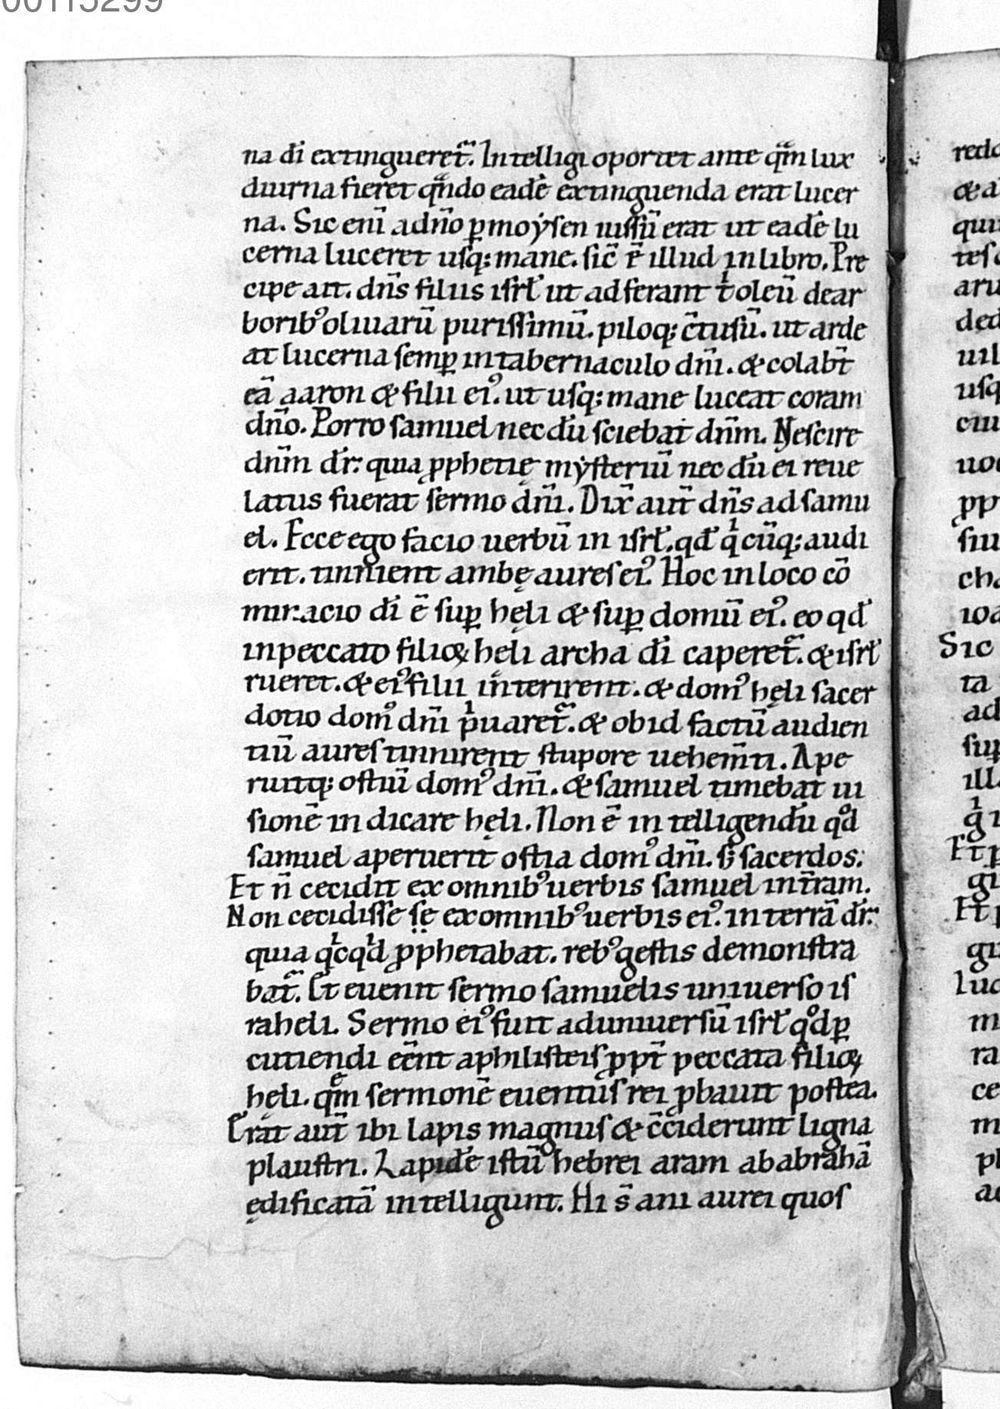 00115299
na dī extingueret᷑. Intelligi oportet ante qm̄ lux
diurna fieret qn̄do eadē extinguenda erat lucer
na. Sic eni᷑ a dn̄o ꝑ moẏsen iussū erat ut eadē lu
cerna luceret usq; mane. sic̄ ē illud in libro. Pre
cipe ait. dn̄s filiis isrl̄ ut adferant tͥ oleū de ar
borib; oliuarū purissimū. piloq; c̄tusū. ut arde
at lucerna semꝑ in tabernaculo dn̄i. & colabt̄
eā aaron & filii ei᷒. ut usq; mane luceat coram
dn̄o. Porro samuel nec dū sciebat dn̄m. Nescire
dn̄m dr̄. quia ꝓphetię mẏsteriū nec dū ei reue
latus fuerat sermo dn̄i. Dix̄ aut̄ dn̄s ad samu
el. Ecce ego facio uerbū in isrl̄. qd̄ qͥcūq; audi
erit. tinnient ambę aures ei᷒. Hoc in loco cō
minacio dī ē suꝑ hęli & suꝑ domū ei᷒. eo qd̄
in peccato filioꝝ heli archa dī caperet᷑. & isrl̄
rueret. & ei᷒ filii int̄erirent. & dom᷒ hęli sacer
dotio dom᷒ dn̄i pͥuaret᷑. & ob id factū audien
tiū aures tinnirent stupore uehem̄ti. Ape
ruitq; ostiū dom᷒ dn̄i. & samuel timebat ui
sionē indicare hęli. Non ē intelligendū qͦd
samuel aperuerit ostia dom᷒ dn̄i. s; sacerdos.
Et n̄ cecidit ex omnib; uerbis samuel in t̄ram.
Non cecidisse sę ex omnib; uerbis ei᷒. in terrā dr̄.
quia qͥcqͥd ꝓphetabat. reb; gestis demonstra
bat᷑. Et euenit sermo samuelis uniuerso is
raheli. Sermo ei᷒ fuit ad uniuersū isrl̄ qͦd ꝑ
cutiendi eēnt a philisteis ꝓpt̄ peccata filioꝝ
hęli. qm̄ sermonē euentus rei ꝓbauit postea.
Erat aut̄ ibi lapis magnus & c̄ciderunt ligna
plaustri. Lapidē istū hebrei aram ab abrahā
ędificatā intelligunt. Hi s̄ ani aurei quos